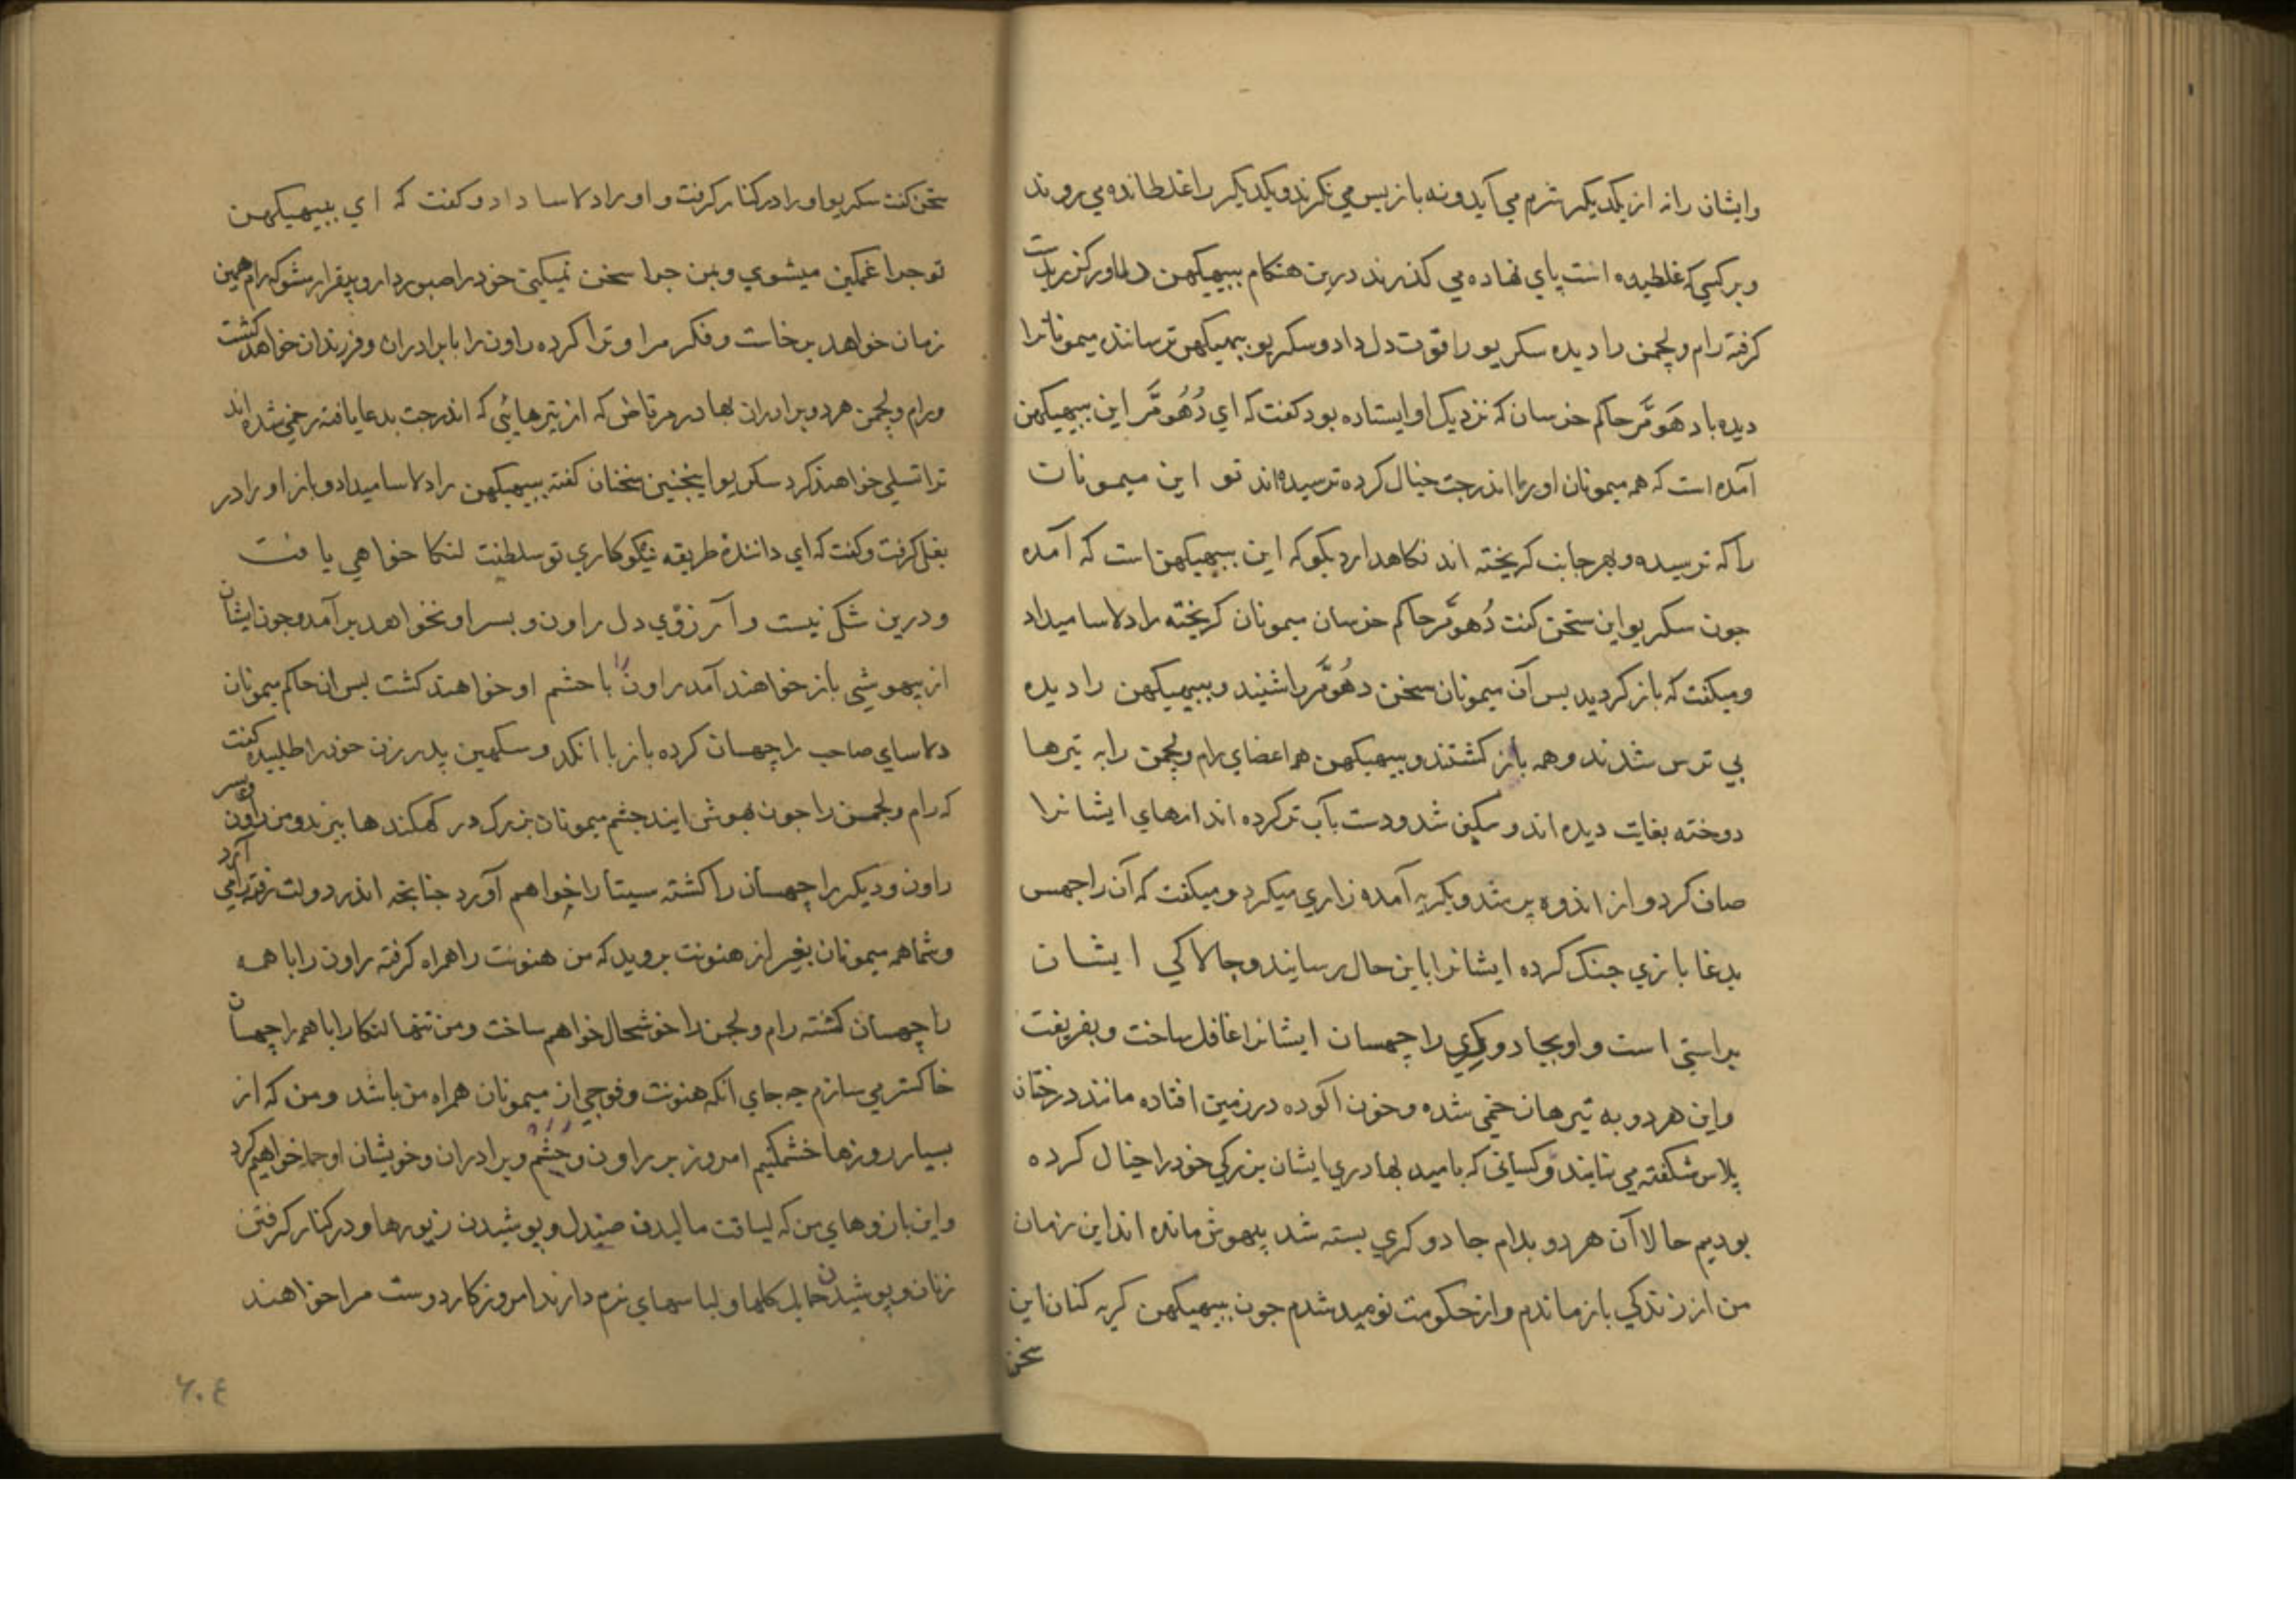 وایشان را نه از یکدیکر شرم می آید و نه باز پس می نکرند و یکدیکر را غلطانده می روند
و بر کسی که غلطیده است پای نهاده می کذرند درین هنکام ببیهیکهن دلاور کرز بدست
کرفته رام و لچمن را دیده سکریو را قوت دل داد و سکریو ببیهیکهن ترسانندۀ میمونانرا
دیده با دهومر حاکم خرسان که نزدیک او ایستاده بود کفت که ای دُهُومَّر این ببیهیکهن
آمده است که همه میمونان او را اندرجت خیال کرده ترسیده اند تو این میمونان
را که ترسیده و بهر جانب کریخته اند نکاهدار و بکو که این ببیهیکهن است که آمده
جون سکریو این سخن کفت دُهومَّر حاکم خرسان میمونان کریخته را دلاسا میداد
و میکفت که باز کردید پس آن میمونان سخن دهُومَّر را شنیند و ببیهیکهن را دیده
بی ترس شدند و همه باز کشتند و ببیهیکهن همه اعضای رام و لچمن را به تیرها
دوخته بغایت دیده اندوهکین شد و دست بآب تر کرده اندامهای ایشانرا
صاف کرد و از اندوه پر شد و بکریه آمده زاری میکرد و میکفت که آن راچهس
بدغا بازی جنک کرده ایشانرا باین حال رسانیند و چالاکی ایشان
براستی است و او بجادوکری راچهسان ایشانرا غافل ساخت و بفریفت
و این هر دو به تیرهان خمی شده و خون آلوده در زمین افتاده مانند درختان
پلاس شکفته می نمایند و کسانی که بامید بهادری ایشان بزرکی خود را خیال کرده
بودیم حالا آن هر دو بدام جادوکری بسته شد بیهوش مانده اند این زمان
من از زندکی باز ماندم و از حکومت نومید شدم جون ببیهیکهن کریه کنان این
سخن
سخن کفت سکریو او را در کنار کرفت و او را دلاسا داد و کفت که ای ببیهیکهن
تو جرا غمکین میشوی و بمن جرا سخن نمیکنی خود را صبور دار و بیقرار مشو که رام همین
زمان خواهد برخاست و فکر مرا و ترا کرده راون را با برادران و فرزندان خواهد کشت
و رام و لچمن هر دو برادران بهادر مرتاض که از تیرهایی که اندرجت بدعا یافته زخمی شده اند
ترا تسلی خواهند کرد سکریو اینجنین سخنان کفته ببیهیکهن را دلاسا میداد و باز او را در
بغل کرفت و کفت که ای دانندۀ طریقه نیکوکاری تو سلطنت لنکا خواهی یافت
و درین شک نیست و آرزوی دل راون و پسر او نخواهد برآمد و جون ایشان
از بیهوشی باز خواهند آمد راون را با حشم او خواهند کشت پس آن حاکم میمونان
دلاسای صاحب راچهسان کرده باز با انکد و سکهین پدر زن خود را طلبیده کفت
که رام و لچمن را جون بهوش ایند جشم میمونان بزرک در کهکندها ببرند و من راون و پسر
راون و دیکر راچهسان را کشته سیتا را خواهم آورد جنانجه اندر دولت رفته را می آرد
و شما همه میمونان بغیر از هنونت بروید که من هنونت را همراه کرفته راون را با همه
راچهسان کشته رام و لچمن را خوشحال خواهم ساخت و من تنها لنکا را با همه راچهسان
خاکستر می سازم جه جای آنکه هنونت و فوجی از میمونان همراه من باشد و من که از
بسیار روزها خشمکینم امروز بر راون و حشم و برادران و خویشان او حمله خواهیم کرد
و این بازوهای من که لیاقت مالیدن صندل و پوشیدن زیورها و در کنار کرفتن
زنان و پوشیدن حمایل کلها و لباسهای نرم دارند امروز کار دوست مرا خواهند
۶۰۴